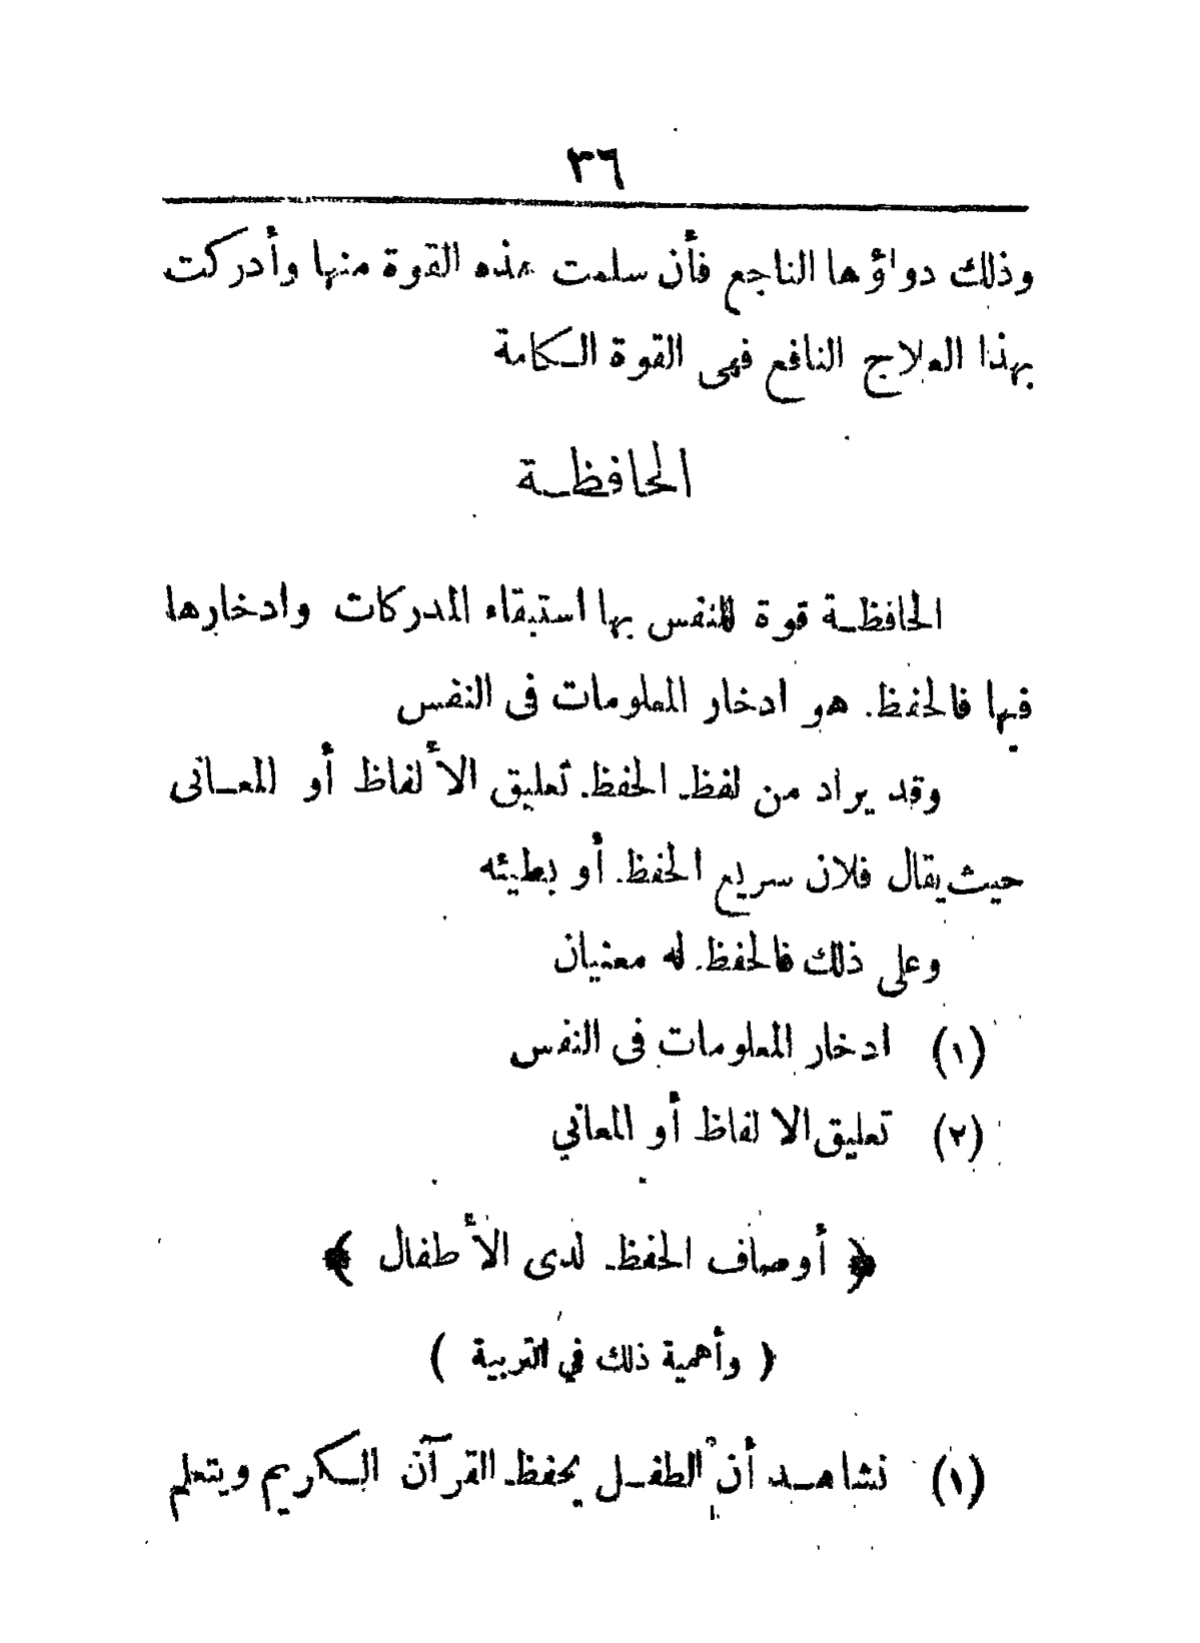 ٣٦
وذلك دواؤها الناجع فأن سلمت هذه القوة منها وأدركت
بهذا العلاج النافع فهى القوة الكامة
الحافظة
الحافظة قوة للنفس بها استبقاء المدركات وادخارها
فيها فالحفظ هو ادخار المعلومات فى النفس
وقد يراد من لفظ الحفظ تعليق الألفاظ أو المعانى
حيث يقال فلان سريع الحفظ أو بطيئه
وعلى ذلك فالحفظ له معنيان
(١) ادخار المعلومات فى النفس
(٢) تعليق الالفاظ أو المعاني
﴿ أوصاف الحفظ لدى الأطفال ﴾
( وأهمية ذلك في التربية )
(١) نشاهد أن الطفل يحفظ القرآن الكريم ويتعلم